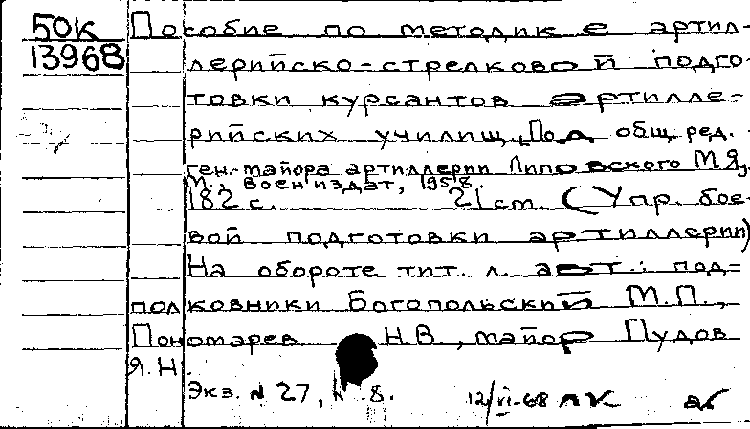 50К Пособие по методике артил-
13968 лерийско-стрелковой подго-
товки курсантов артилле-
рийских училищ. Под общ. ред.
ген.-майора артиллерии Липовского М.Я.
М., Воениздат, 1958.
182 с. 21 см. (Упр. бое-
вой подготовки артиллерии)
На обороте тит. л. авт.: под-
полковники Богопольский М.П.,
Пономарев Н.В., майор Пудов
Я.Н.
Экз. № 27, № 8. 12/VI-68 ЛК